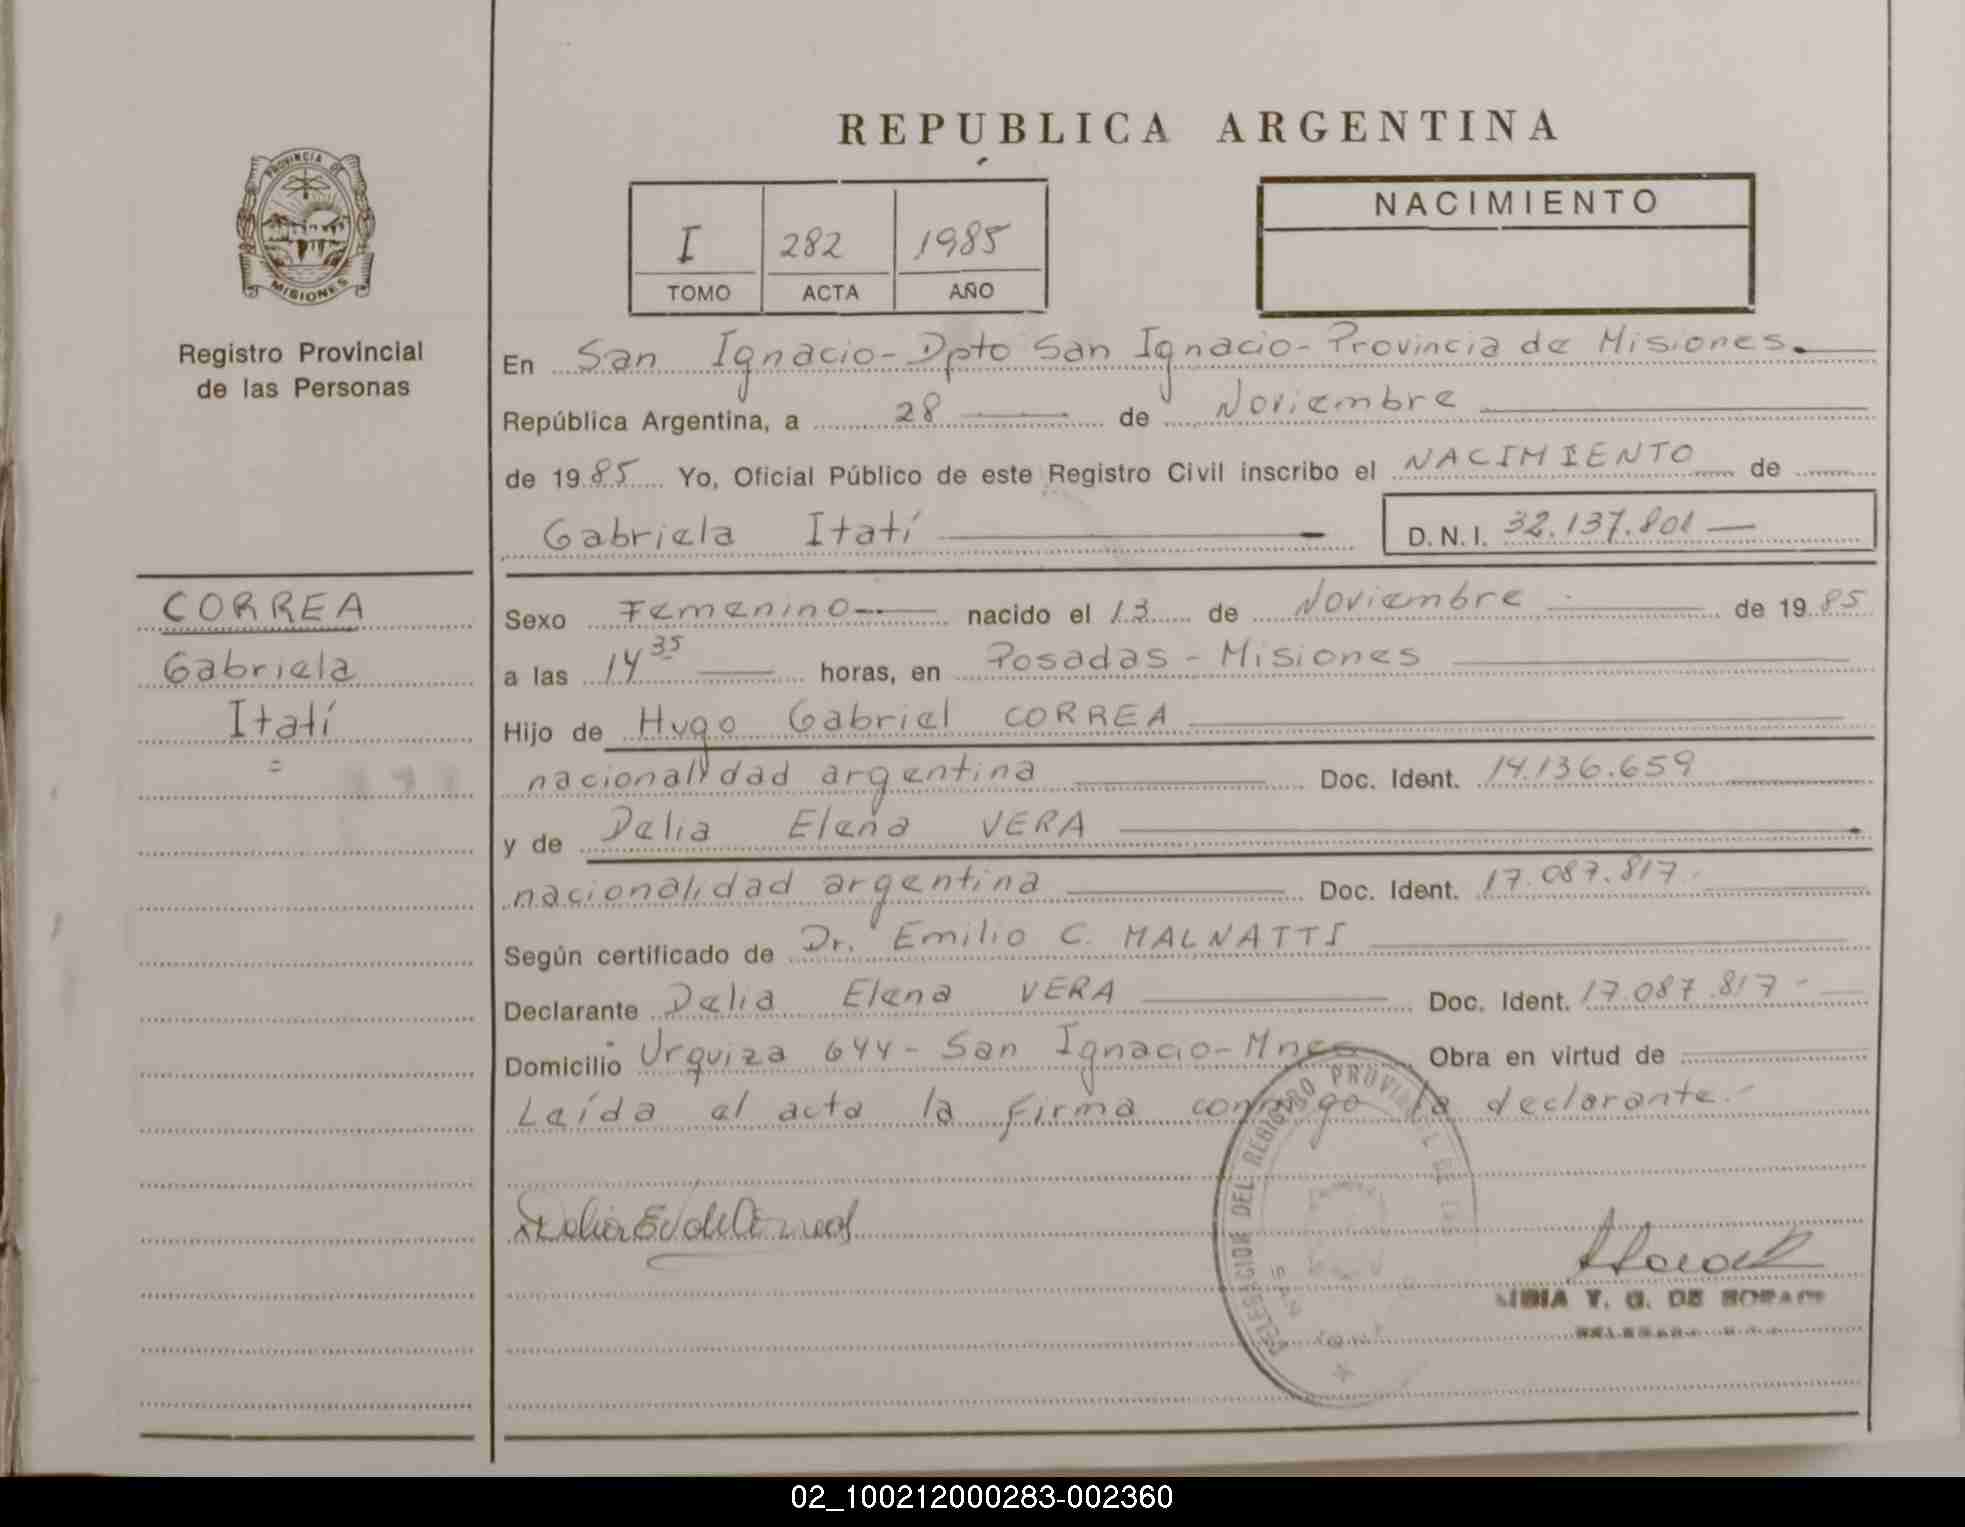 REPUBLICA ARGENTINA
PROVINCIA DE
MISIONES
Registro Provincial
de las Personas
I 282 1985
TOMO ACTA AÑO
NACIMIENTO
En San Ignacio - Dpto San Ignacio - Provincia de Misiones.
República Argentina, a 28 de Noviembre
de 1985 Yo, Oficial Público de este Registro Civil inscribo el NACIMIENTO de
Gabriela Itatí D.N.I. 32.137.801
CORREA
Gabriela
Itatí
Sexo Femenino nacido el 13 de Noviembre de 1985
a las 14 35 horas, en Posadas - Misiones
Hijo de Hugo Gabriel CORREA
nacionalidad argentina Doc. Ident. 14.136.659
y de Delia Elena VERA
nacionalidad argentina Doc. Ident. 17.087.817
Según certificado de Dr. Emilio C. MALNATTI
Declarante Delia Elena VERA Doc. Ident. 17.087.817
Domicilio Urquiza 644 - San Ignacio - Mnes Obra en virtud de
Leída el acta la firma conmigo la declarante.
DELEGACION DEL REGISTRO PROVINCIAL DE
SAN
Y. G. DE
02_100212000283-002360